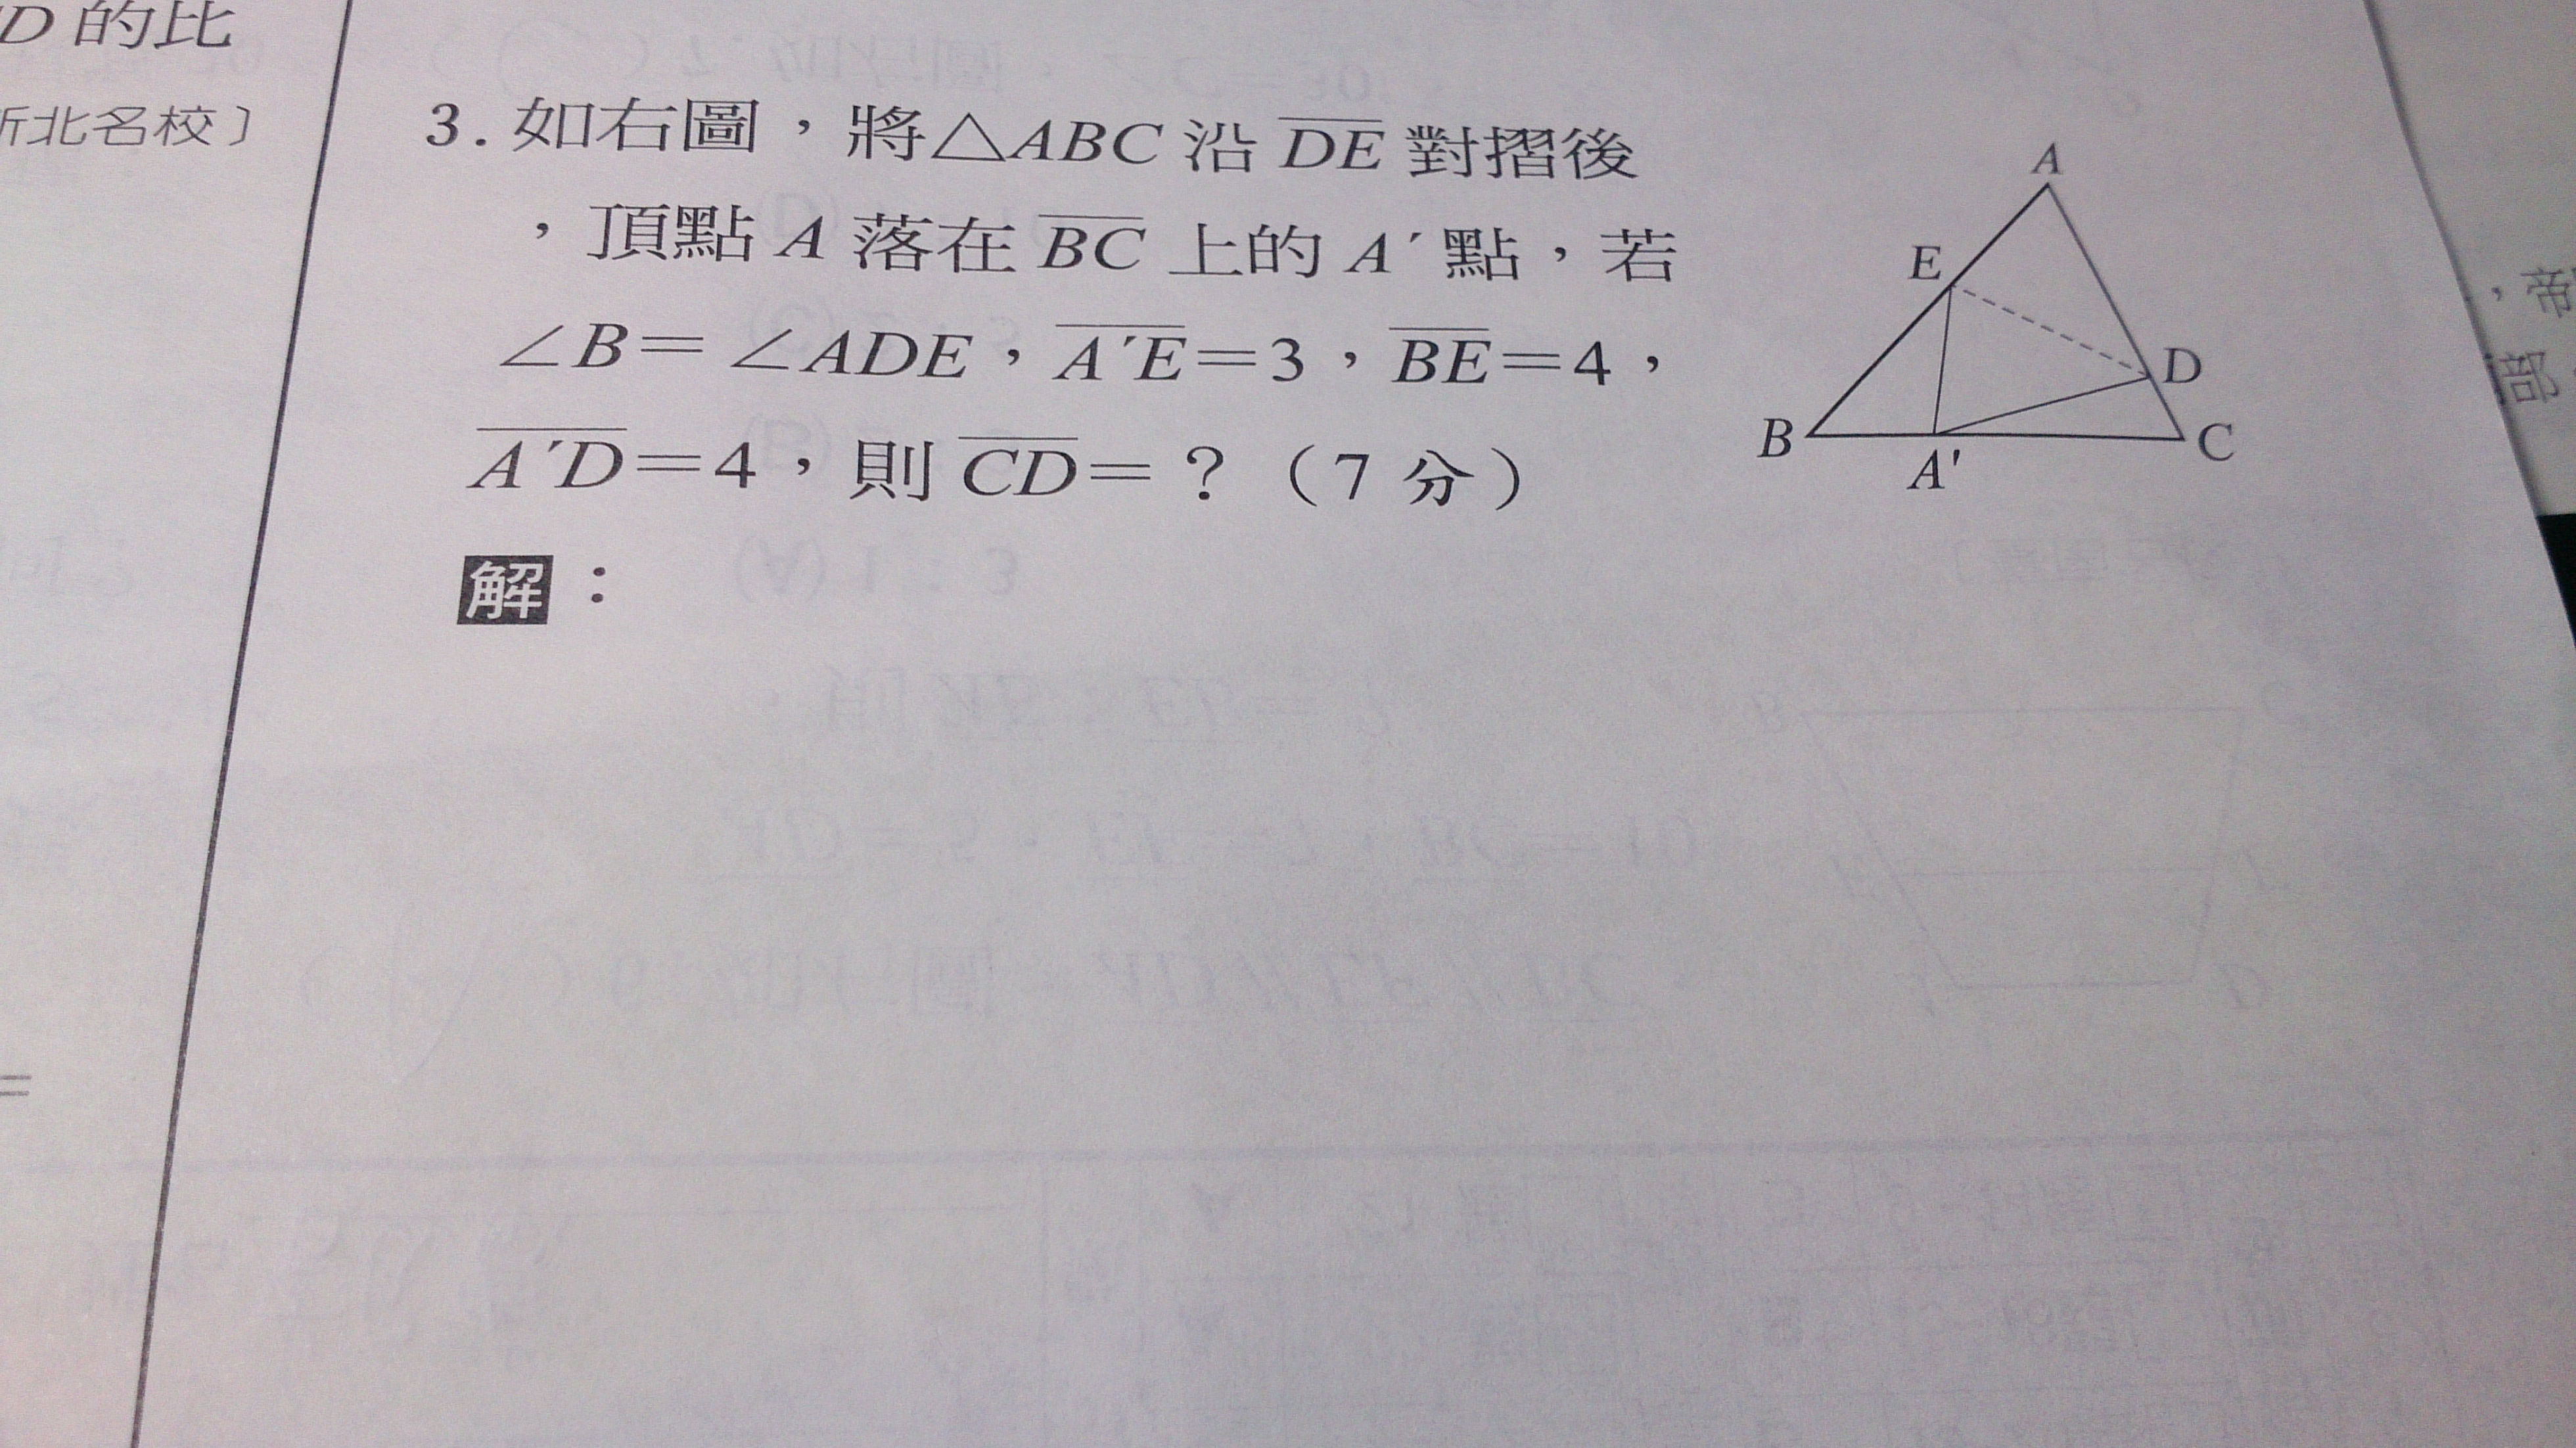 D 的比
北名校〕
3. 如右圖，將△ABC 沿 DE 對摺後
，頂點 A 落在 BC 上的 A′點，若
∠B＝∠ADE，A′E＝3，BE＝4，
A′D＝4，則 CD＝？（7 分）
解：
A
E
D
B
C
A'
，帝
部
＝